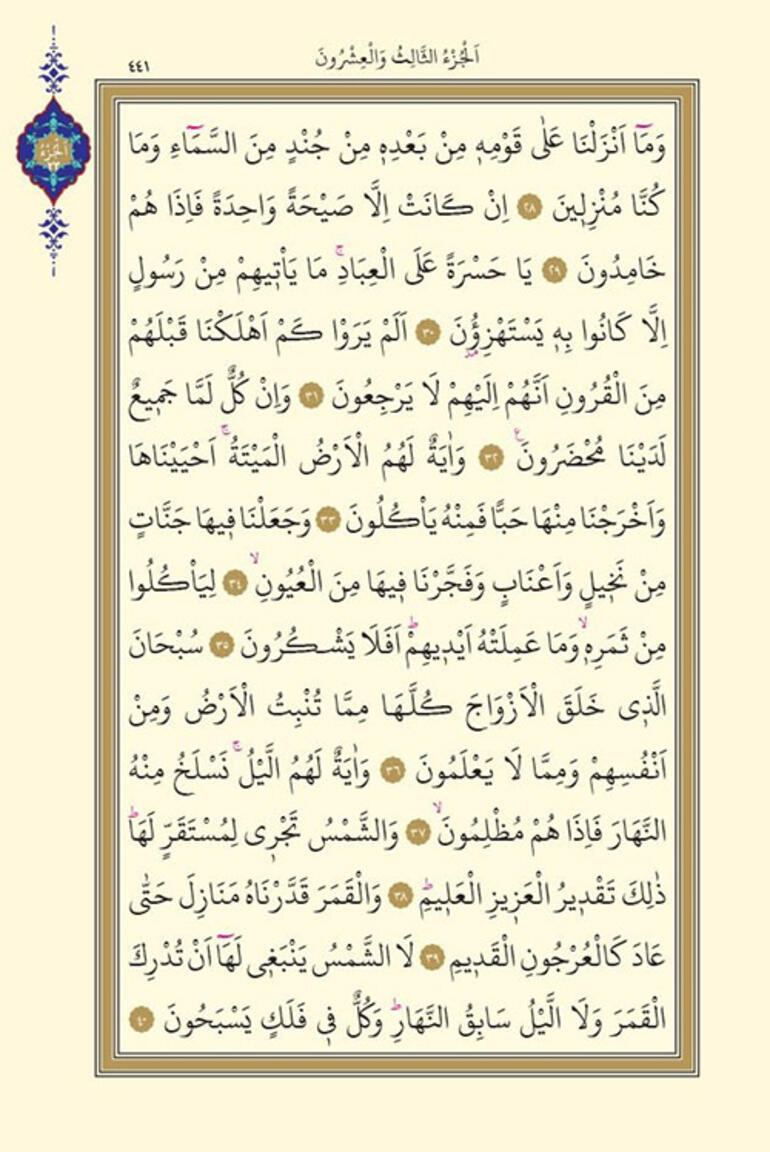 اَلْجُزْءُ الثَّالِثُ وَالْعِشْرُونَ
٤٤١
اَلْجُزْءُ
٢٣
وَمَٓا اَنْزَلْنَا عَلٰى قَوْمِه۪ مِنْ بَعْدِه۪ مِنْ جُنْدٍ مِنَ السَّمَٓاءِ وَمَا
كُنَّا مُنْزِل۪ينَ ٢٨ اِنْ كَانَتْ اِلَّا صَيْحَةً وَاحِدَةً فَاِذَا هُمْ
خَامِدُونَ ٢٩ يَا حَسْرَةً عَلَى الْعِبَادِۚ مَا يَأْت۪يهِمْ مِنْ رَسُولٍ
اِلَّا كَانُوا بِه۪ يَسْتَهْزِؤُ۫نَ ٣٠ اَلَمْ يَرَوْا كَمْ اَهْلَكْنَا قَبْلَهُمْ
مِنَ الْقُرُونِ اَنَّهُمْ اِلَيْهِمْ لَا يَرْجِعُونَ ٣١ وَاِنْ كُلٌّ لَمَّا جَم۪يعٌ
لَدَيْنَا مُحْضَرُونَ۟ ٣٢ وَاٰيَةٌ لَهُمُ الْاَرْضُ الْمَيْتَةُۚ اَحْيَيْنَاهَا
وَاَخْرَجْنَا مِنْهَا حَبًّا فَمِنْهُ يَأْكُلُونَ ٣٣ وَجَعَلْنَا ف۪يهَا جَنَّاتٍ
مِنْ نَخ۪يلٍ وَاَعْنَابٍ وَفَجَّرْنَا ف۪يهَا مِنَ الْعُيُونِۙ ٣٤ لِيَأْكُلُوا
مِنْ ثَمَرِه۪ۙ وَمَا عَمِلَتْهُ اَيْد۪يهِمْۜ اَفَلَا يَشْكُرُونَ ٣٥ سُبْحَانَ
الَّذ۪ى خَلَقَ الْاَزْوَاجَ كُلَّهَا مِمَّا تُنْبِتُ الْاَرْضُ وَمِنْ
اَنْفُسِهِمْ وَمِمَّا لَا يَعْلَمُونَ ٣٦ وَاٰيَةٌ لَهُمُ الَّيْلُۚ نَسْلَخُ مِنْهُ
النَّهَارَ فَاِذَا هُمْ مُظْلِمُونَۙ ٣٧ وَالشَّمْسُ تَجْر۪ى لِمُسْتَقَرٍّ لَهَاۜ
ذٰلِكَ تَقْد۪يرُ الْعَز۪يزِ الْعَل۪يمِۜ ٣٨ وَالْقَمَرَ قَدَّرْنَاهُ مَنَازِلَ حَتّٰى
عَادَ كَالْعُرْجُونِ الْقَد۪يمِ ٣٩ لَا الشَّمْسُ يَنْبَغ۪ى لَهَٓا اَنْ تُدْرِكَ
الْقَمَرَ وَلَا الَّيْلُ سَابِقُ النَّهَارِۜ وَكُلٌّ ف۪ى فَلَكٍ يَسْبَحُونَ ٤٠